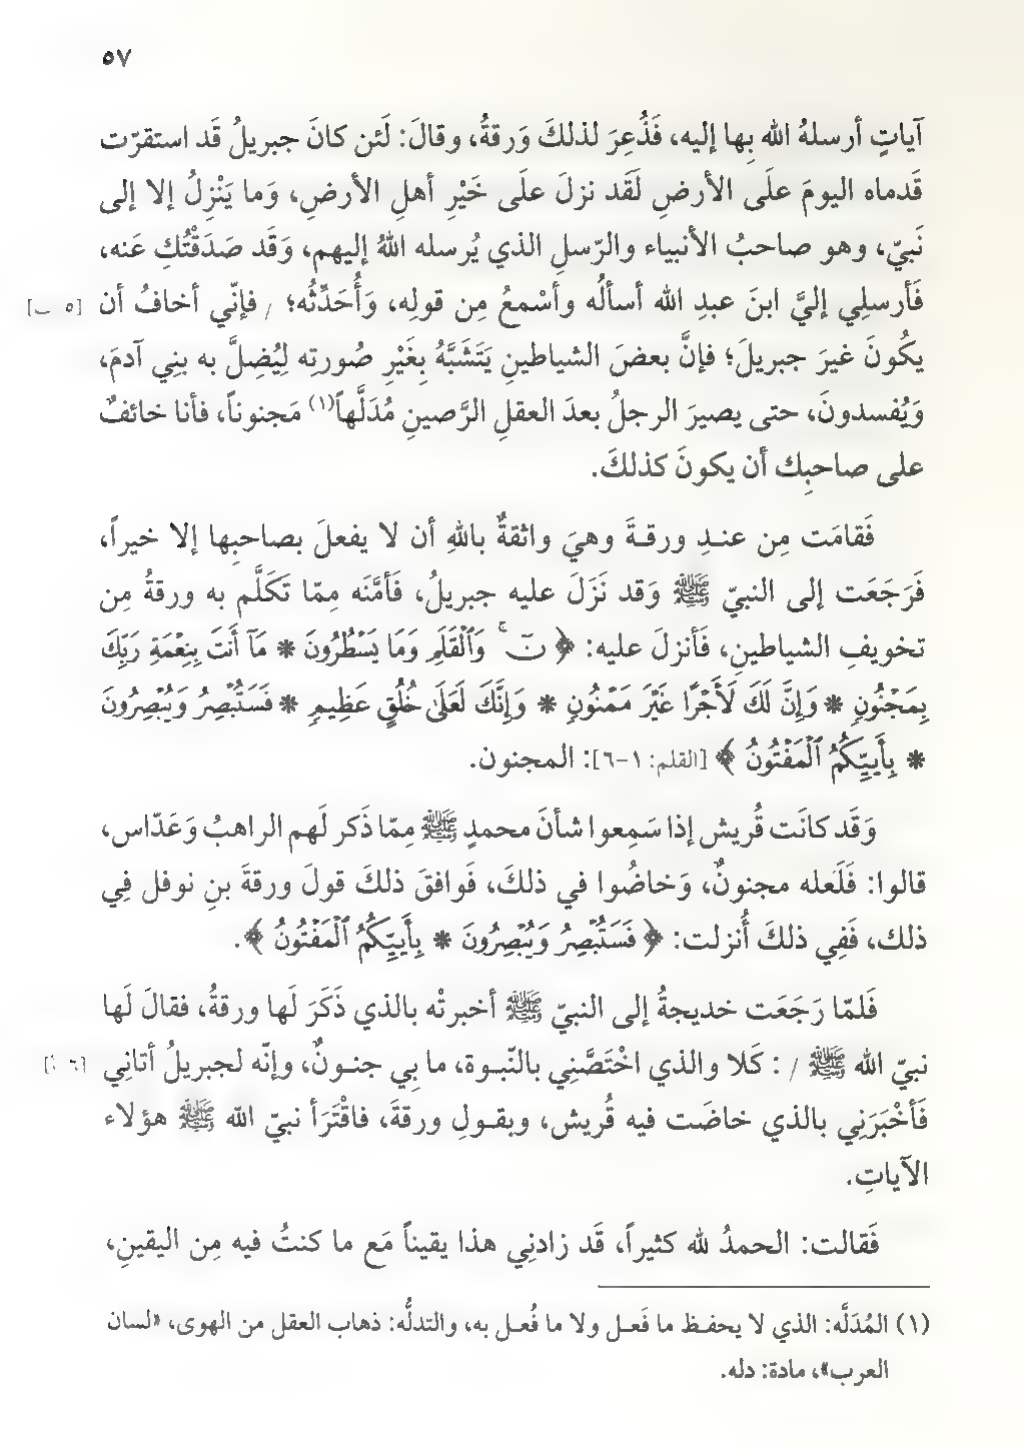 ٥٧
آياتٍ أرسلهُ الله بِها إليه، فَذُعِرَ لذلكَ وَرقةُ، وقالَ: لَئن كانَ جبريلُ قَد استقرّت
قَدماه اليومَ علَى الأرضِ لَقَد نزلَ علَى خَيْرِ أهلِ الأرضِ، وَما يَنْزِلُ إلا إلى
نَبيّ، وهو صاحبُ الأنبياء والرّسلِ الذي يُرسله اللهُ إليهم، وَقَد صَدَقْتُكِ عَنه،
فَأرسلِي إليَّ ابنَ عبدِ الله أسألُه وأسْمعُ مِن قولِه، وَأُحَدِّثُه؛ / فإنّي أخافُ أن [٥ ب]
يكُونَ غيرَ جبريلَ؛ فإنَّ بعضَ الشياطينِ يَتَشَبَّهُ بِغَيْرِ صُورتِه لِيُضِلَّ به بنِي آدمَ،
وَيُفسدونَ، حتى يصيرَ الرجلُ بعدَ العقلِ الرَّصينِ مُدَلَّهاً(١) مَجنوناً، فأنا خائفٌ
على صاحبِك أن يكونَ كذلكَ.
فَقامَت مِن عنـدِ ورقـةَ وهيَ واثقةٌ باللهِ أن لا يفعلَ بصاحبِها إلا خيراً،
فَرَجَعَت إلى النبيّ ﷺ وَقد نَزَلَ عليه جبريلُ، فَأمَّنَه مِمّا تَكَلَّم به ورقةُ مِن
تخويفِ الشياطينِ، فَأنزلَ عليه: ﴿ نٓۚ وَٱلْقَلَمِ وَمَا يَسْطُرُونَ * مَآ أَنتَ بِنِعْمَةِ رَبِّكَ
بِمَجْنُونٍ * وَإِنَّ لَكَ لَأَجْرًا غَيْرَ مَمْنُونٍ * وَإِنَّكَ لَعَلَىٰ خُلُقٍ عَظِيمٍ * فَسَتُبْصِرُ وَيُبْصِرُونَ
* بِأَييِّكُمُ ٱلْمَفْتُونُ ﴾ [القلم: ١-٦]: المجنون.
وَقَد كانَت قُريش إذا سَمِعوا شأنَ محمدٍ ﷺ مِمّا ذَكر لَهم الراهبُ وَعَدّاس،
قالوا: فَلَعله مجنونٌ، وَخاضُوا في ذلكَ، فَوافقَ ذلكَ قولَ ورقةَ بنِ نوفل فِي
ذلك، فَفِي ذلكَ أُنزلت: ﴿ فَسَتُبْصِرُ وَيُبْصِرُونَ * بِأَييِّكُمُ ٱلْمَفْتُونُ ﴾.
فَلمّا رَجَعَت خديجةُ إلى النبيّ ﷺ أخبرتْه بالذي ذَكَرَ لَها ورقةُ، فقالَ لَها
نبيّ الله ﷺ / : كَلا والذي اخْتَصَّنِي بالنّبـوة، ما بِي جنـونٌ، وإنّه لجبريلُ أتانِي [٦ أ]
فَأخْبَرَنِي بالذي خاضَت فيه قُريش، وبقـولِ ورقةَ، فاقْتَرَأ نبيّ الله ﷺ هؤلاء
الآياتِ.
فَقالت: الحمدُ لله كثيراً، قَد زادنِي هذا يقيناً مَع ما كنتُ فيه مِن اليقينِ،
(١) المُدَلَّه: الذي لا يحفـظ ما فَعـل ولا ما فُعـل به، والتدلُّه: ذهاب العقل من الهوى، «لسان
العرب»، مادة: دله.